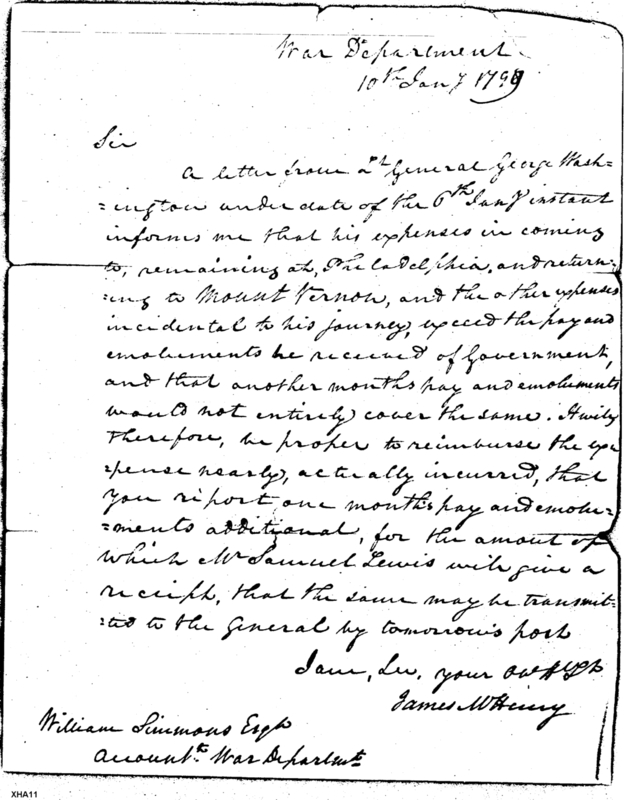 War Department
10th Jany 1799
Sir
A letter from Lt General George Wash=
=ington under date of the 6th Jany instant
informs me that his expenses in coming
to, remaining at, Philadelphia, and return=
=ing to Mount Vernon, and the other expenses
incidental to his journey, exceed the pay and
emoluments he received of Government,
and that another months pay and emoluments
would not entirely cover the same. It will
therefore, be proper to reimburse the ex=
=pense nearly, actually incurred, that
you report one months pay and emolu=
=ments additional, for the amount of
which Mr Samuel Lewis will give a
receipt, that the same may be transmit=
=ted to the General by tomorrow's post
I am, Sir, your
James McHenry
William Simmons Esqr
Accountt War Departmt
XHA11